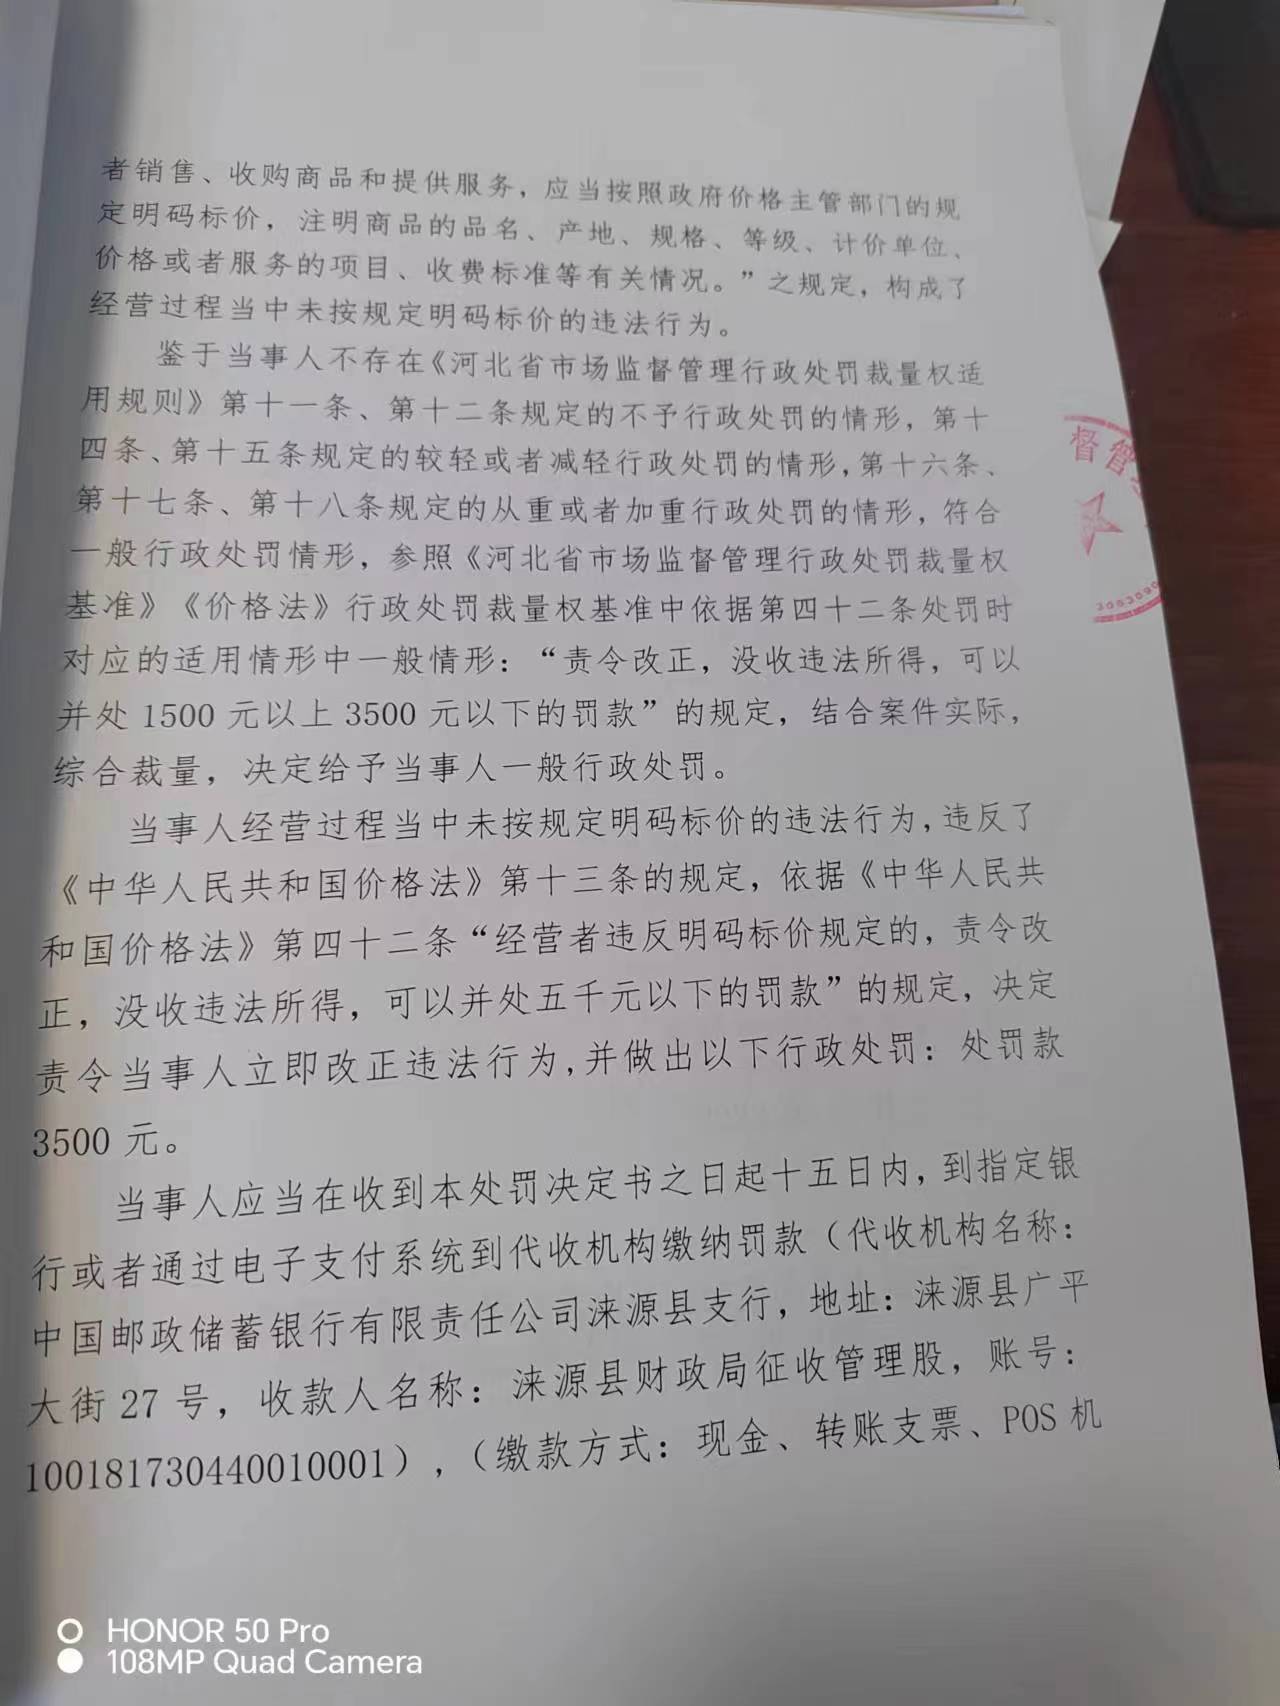 者销售、收购商品和提供服务，应当按照政府价格主管部门的规
定明码标价，注明商品的品名、产地、规格、等级、计价单位、
价格或者服务的项目、收费标准等有关情况。”之规定，构成了
经营过程当中未按规定明码标价的违法行为。
鉴于当事人不存在《河北省市场监督管理行政处罚裁量权适
用规则》第十一条、第十二条规定的不予行政处罚的情形，第十
四条、第十五条规定的较轻或者减轻行政处罚的情形，第十六条、
第十七条、第十八条规定的从重或者加重行政处罚的情形，符合
一般行政处罚情形，参照《河北省市场监督管理行政处罚裁量权
基准》《价格法》行政处罚裁量权基准中依据第四十二条处罚时
对应的适用情形中一般情形：“责令改正，没收违法所得，可以
并处 1500 元以上 3500 元以下的罚款”的规定，结合案件实际，
综合裁量，决定给予当事人一般行政处罚。
当事人经营过程当中未按规定明码标价的违法行为，违反了
《中华人民共和国价格法》第十三条的规定，依据《中华人民共
和国价格法》第四十二条“经营者违反明码标价规定的，责令改
正，没收违法所得，可以并处五千元以下的罚款”的规定，决定
责令当事人立即改正违法行为,并做出以下行政处罚：处罚款
3500 元。
当事人应当在收到本处罚决定书之日起十五日内，到指定银
行或者通过电子支付系统到代收机构缴纳罚款（代收机构名称：
中国邮政储蓄银行有限责任公司涞源县支行，地址：涞源县广平
大街 27 号，收款人名称：涞源县财政局征收管理股，账号：
100181730440010001），（缴款方式：现金、转账支票、POS 机
督管
HONOR 50 Pro
108MP Quad Camera